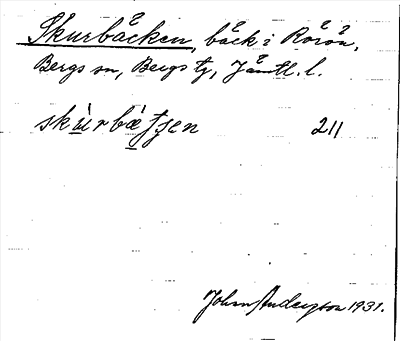 Skurbäcken, bäck i Rörön,
Bergs sn, Bergs tg, Jämtl. l.
skùrbæ̀ʃʃen 211
John Andersson 1931.